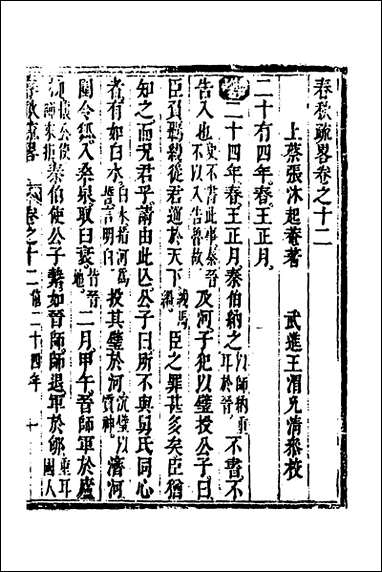 春秋疏畧卷之十二
上蔡張沐起菴著　武進王渭允清叅校
二十有四年。春。王正月。
二十四年。春。王正月。秦伯納之以師納重耳於晉。不書。不
告入也史不書此事秦晉不以入告魯故及河。子犯以璧授公子。曰
臣負羈絏從君巡於天下臣之罪甚多矣。臣猶
知之。而况君乎。請由此亡。公子曰。所不與舅氏同心
者。有如白水白水指河爲誓言明白投其璧於河沉璧以質神濟河
圍令狐。入桑泉。取臼衰皆晉地。二月。甲午。晉師軍於廬
秦伯使公子縶如晉師。師退。軍於郇重耳國人
春秋疏畧　卷之十二　僖二十四年　一